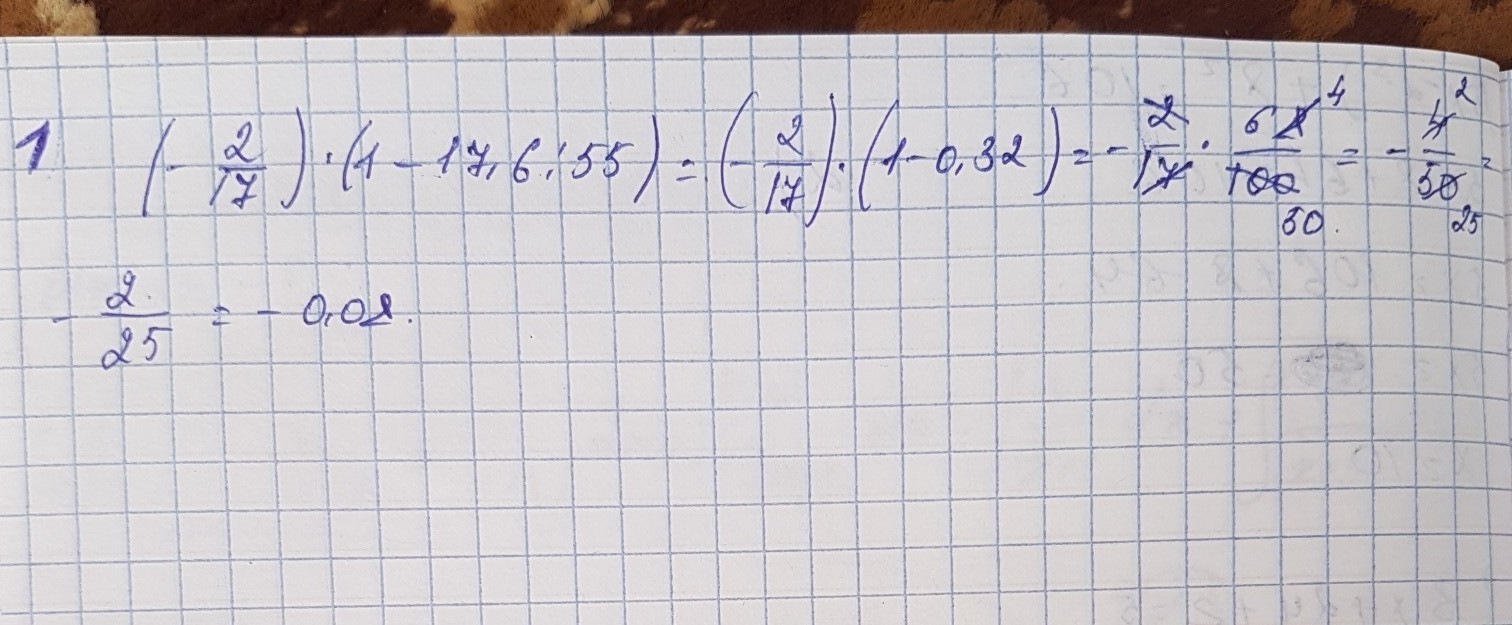 1 (-2/17)·(1-17,6:55)=(-2/17)·(1-0,32)=-2/17·68/100=-4/50=
4 50 2 25
-2/25=-0,08.